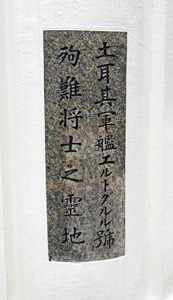 土耳其軍艦エルトグルル號
殉難將士之霊地